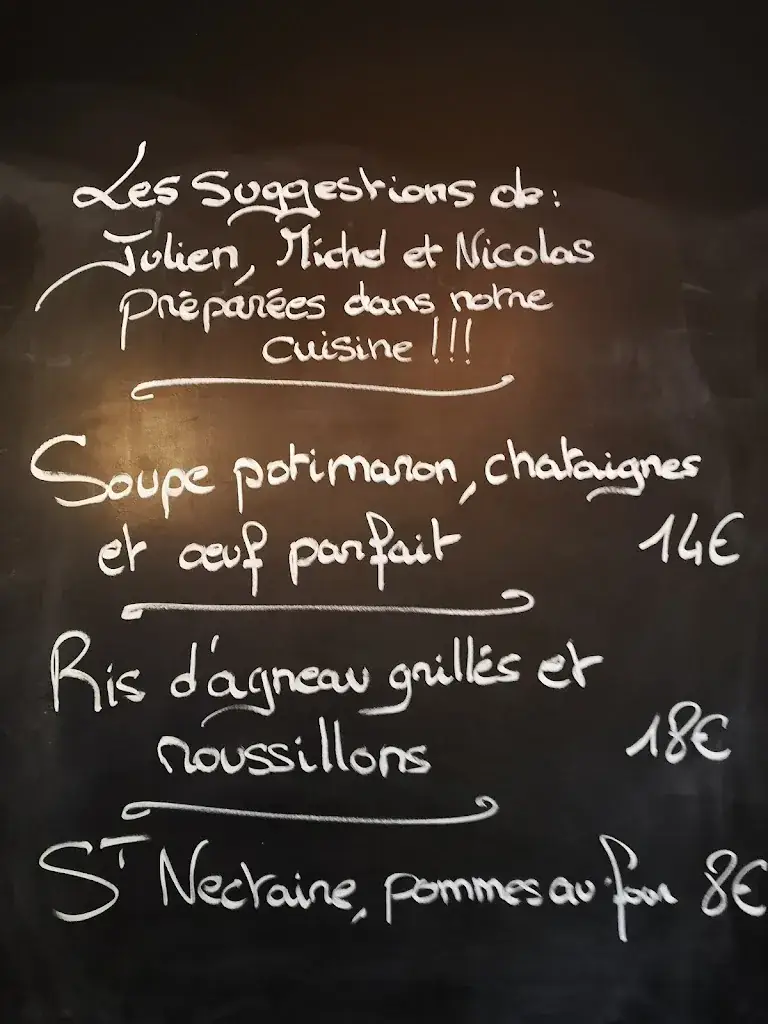 Les Suggestions de:
Julien, Michel et Nicolas
Préparées dans notre
cuisine !!!
Soupe potimaron, chataignes
et œuf parfait 14€
Ris d'agneau grillés et
roussillons 18€
ST Nectaire, pommes au four 8€